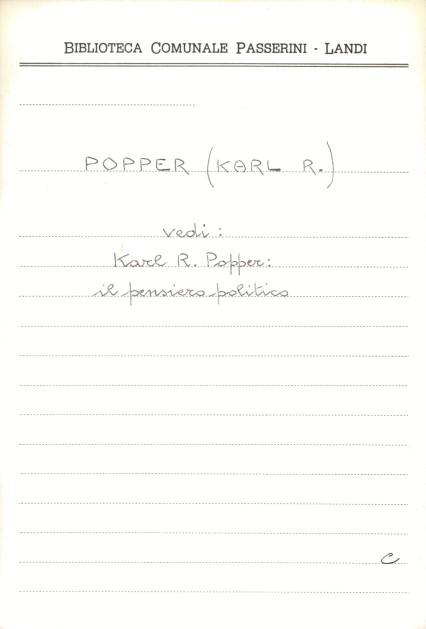 BIBLIOTECA COMUNALE PASSERINI - LANDI
POPPER (KARL R.)
vedi:
Karl R. Popper:
il pensiero politico
C